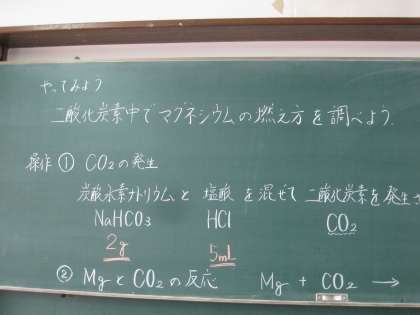 やってみよう
二酸化炭素中でマグネシウムの燃え方を調べよう.
操作 ① CO₂の発生
炭酸水素ナトリウムと 塩酸 を混ぜて 二酸化炭素を発生さ
NaHCO₃ HCl CO₂
2g 5mL
② MgとCO₂の反応 Mg + CO₂ →